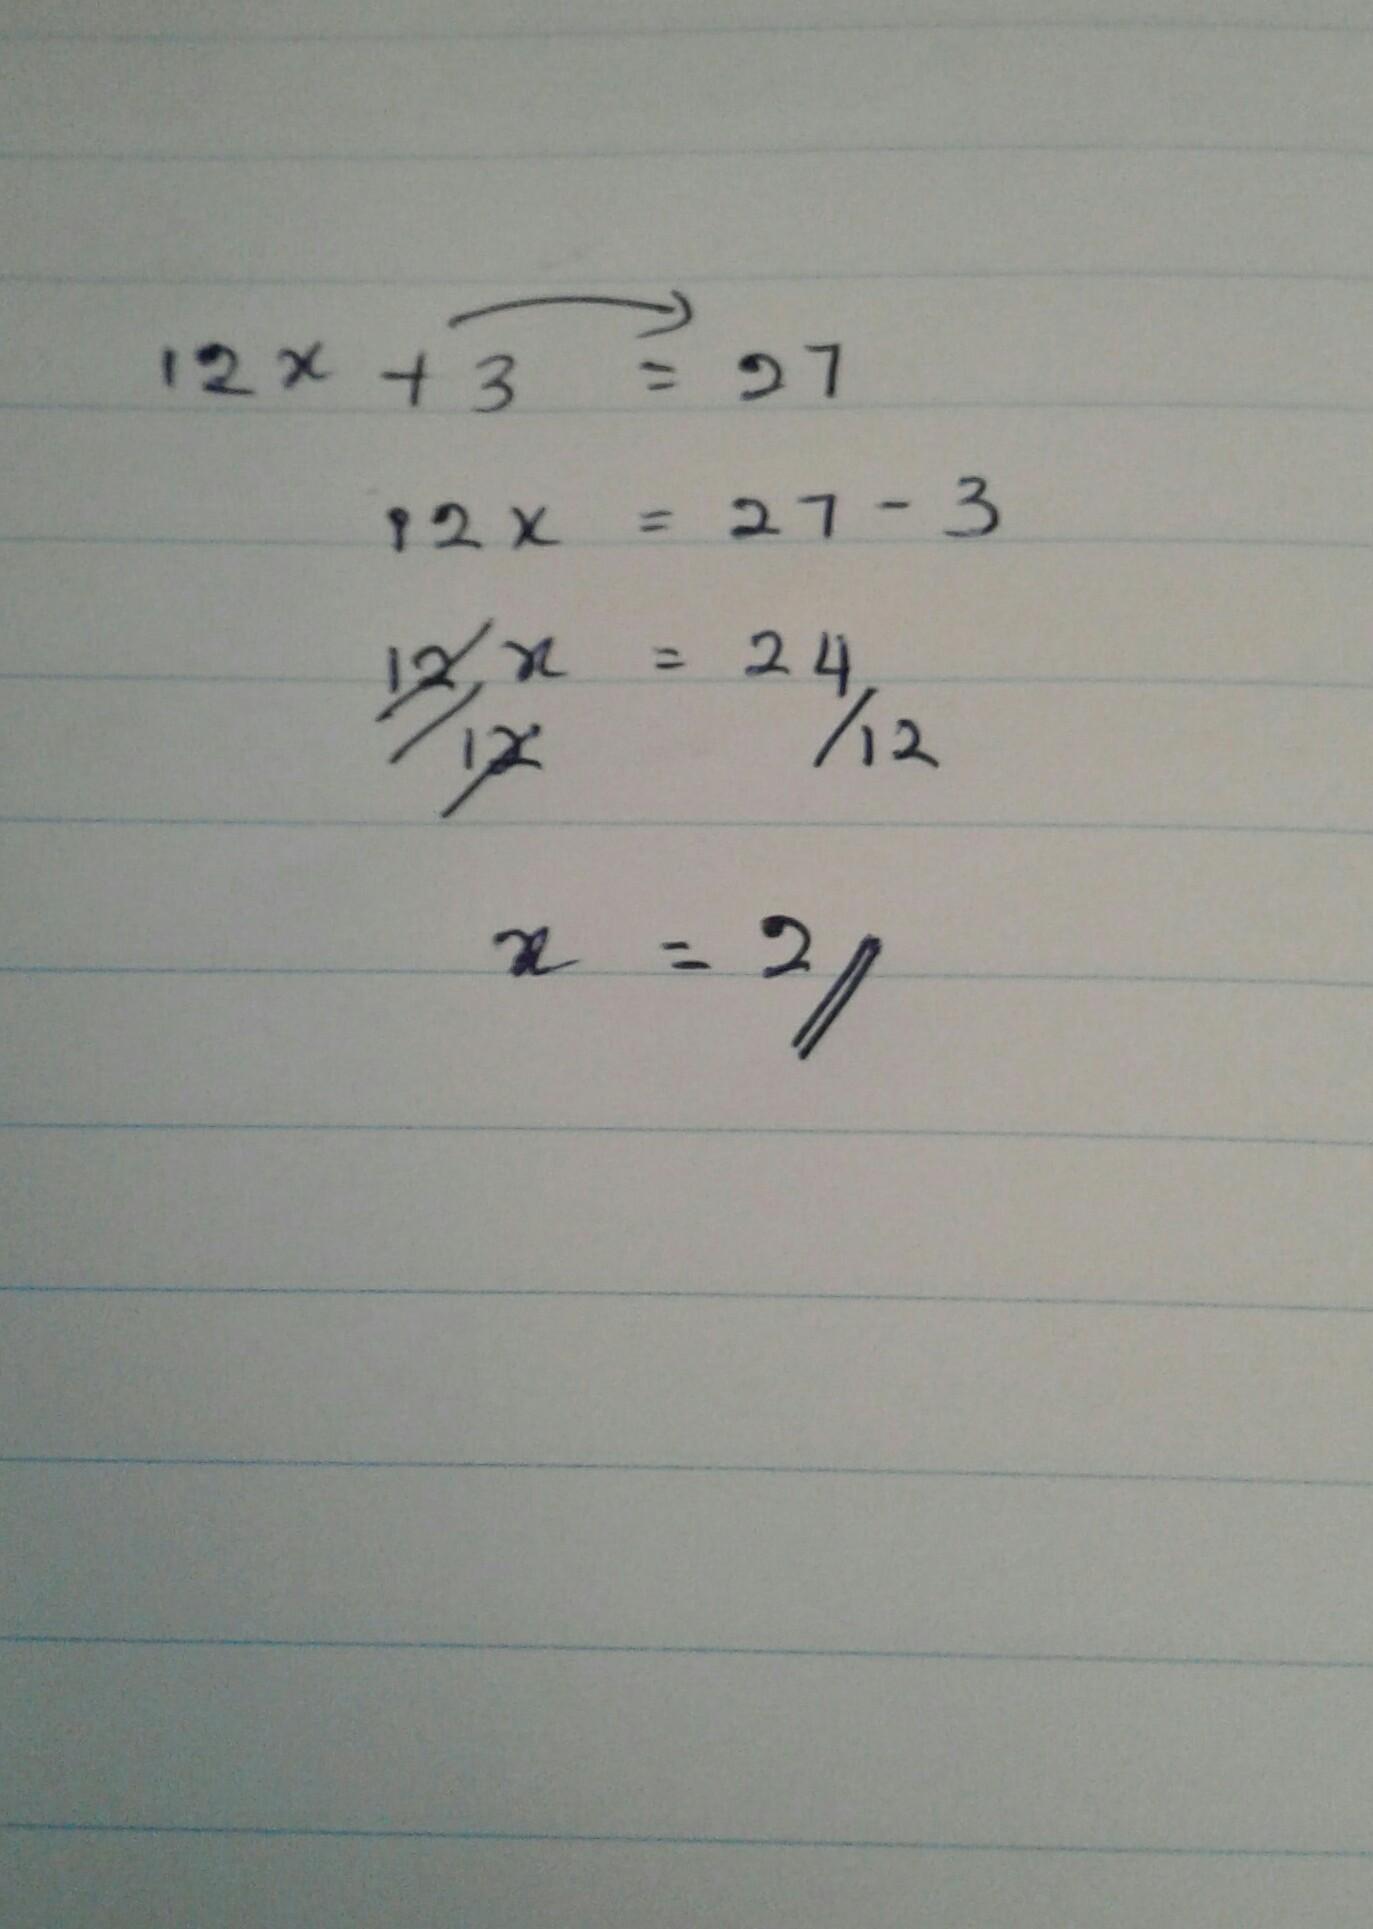 12x + 3 = 27
12x = 27 - 3
12x/12 = 24/12
x = 2//